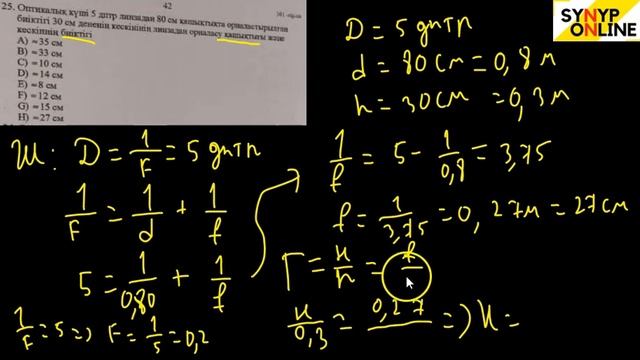 42
301-нұсқа
25. Оптикалық күші 5 дптр линзадан 80 см қашықтықта орналастырылған
биіктігі 30 см дененің кескінінің линзадан орналасу қашықтығы және
кескіннің биіктігі
A) ≈35 см
B) ≈33 см
C) ≈10 см
D) ≈14 см
E) ≈8 см
F) ≈12 см
G) ≈15 см
H) ≈27 см
SYNYP
ONLINE
D = 5 дптр
d = 80 см = 0,8 м
h = 30 см = 0,3 м
Ш: D = 1/F = 5 дптр
1/F = 1/d + 1/f
5 = 1/0,80 + 1/f
1/F = 5 => F = 1/5 = 0,2
1/f = 5 - 1/0,8 = 3,75
f = 1/3,75 = 0,27 м = 27 см
Г = H/h = f/
H/0,3 = 0,27/ => H =